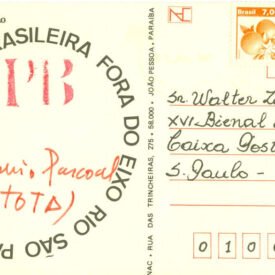 ÃO
BRASILEIRA FORA DO EIXO RIO SÃO PA
Pascoal
(TOTA)
NAC • RUA DAS TRINCHEIRAS, 275 • 58.000 • JOÃO PESSOA • PARAÍBA
Brasil 7,0
Sr. Walter Z
XVI-Bienal
Caixa Post
S. Paulo -
0 1 0 0